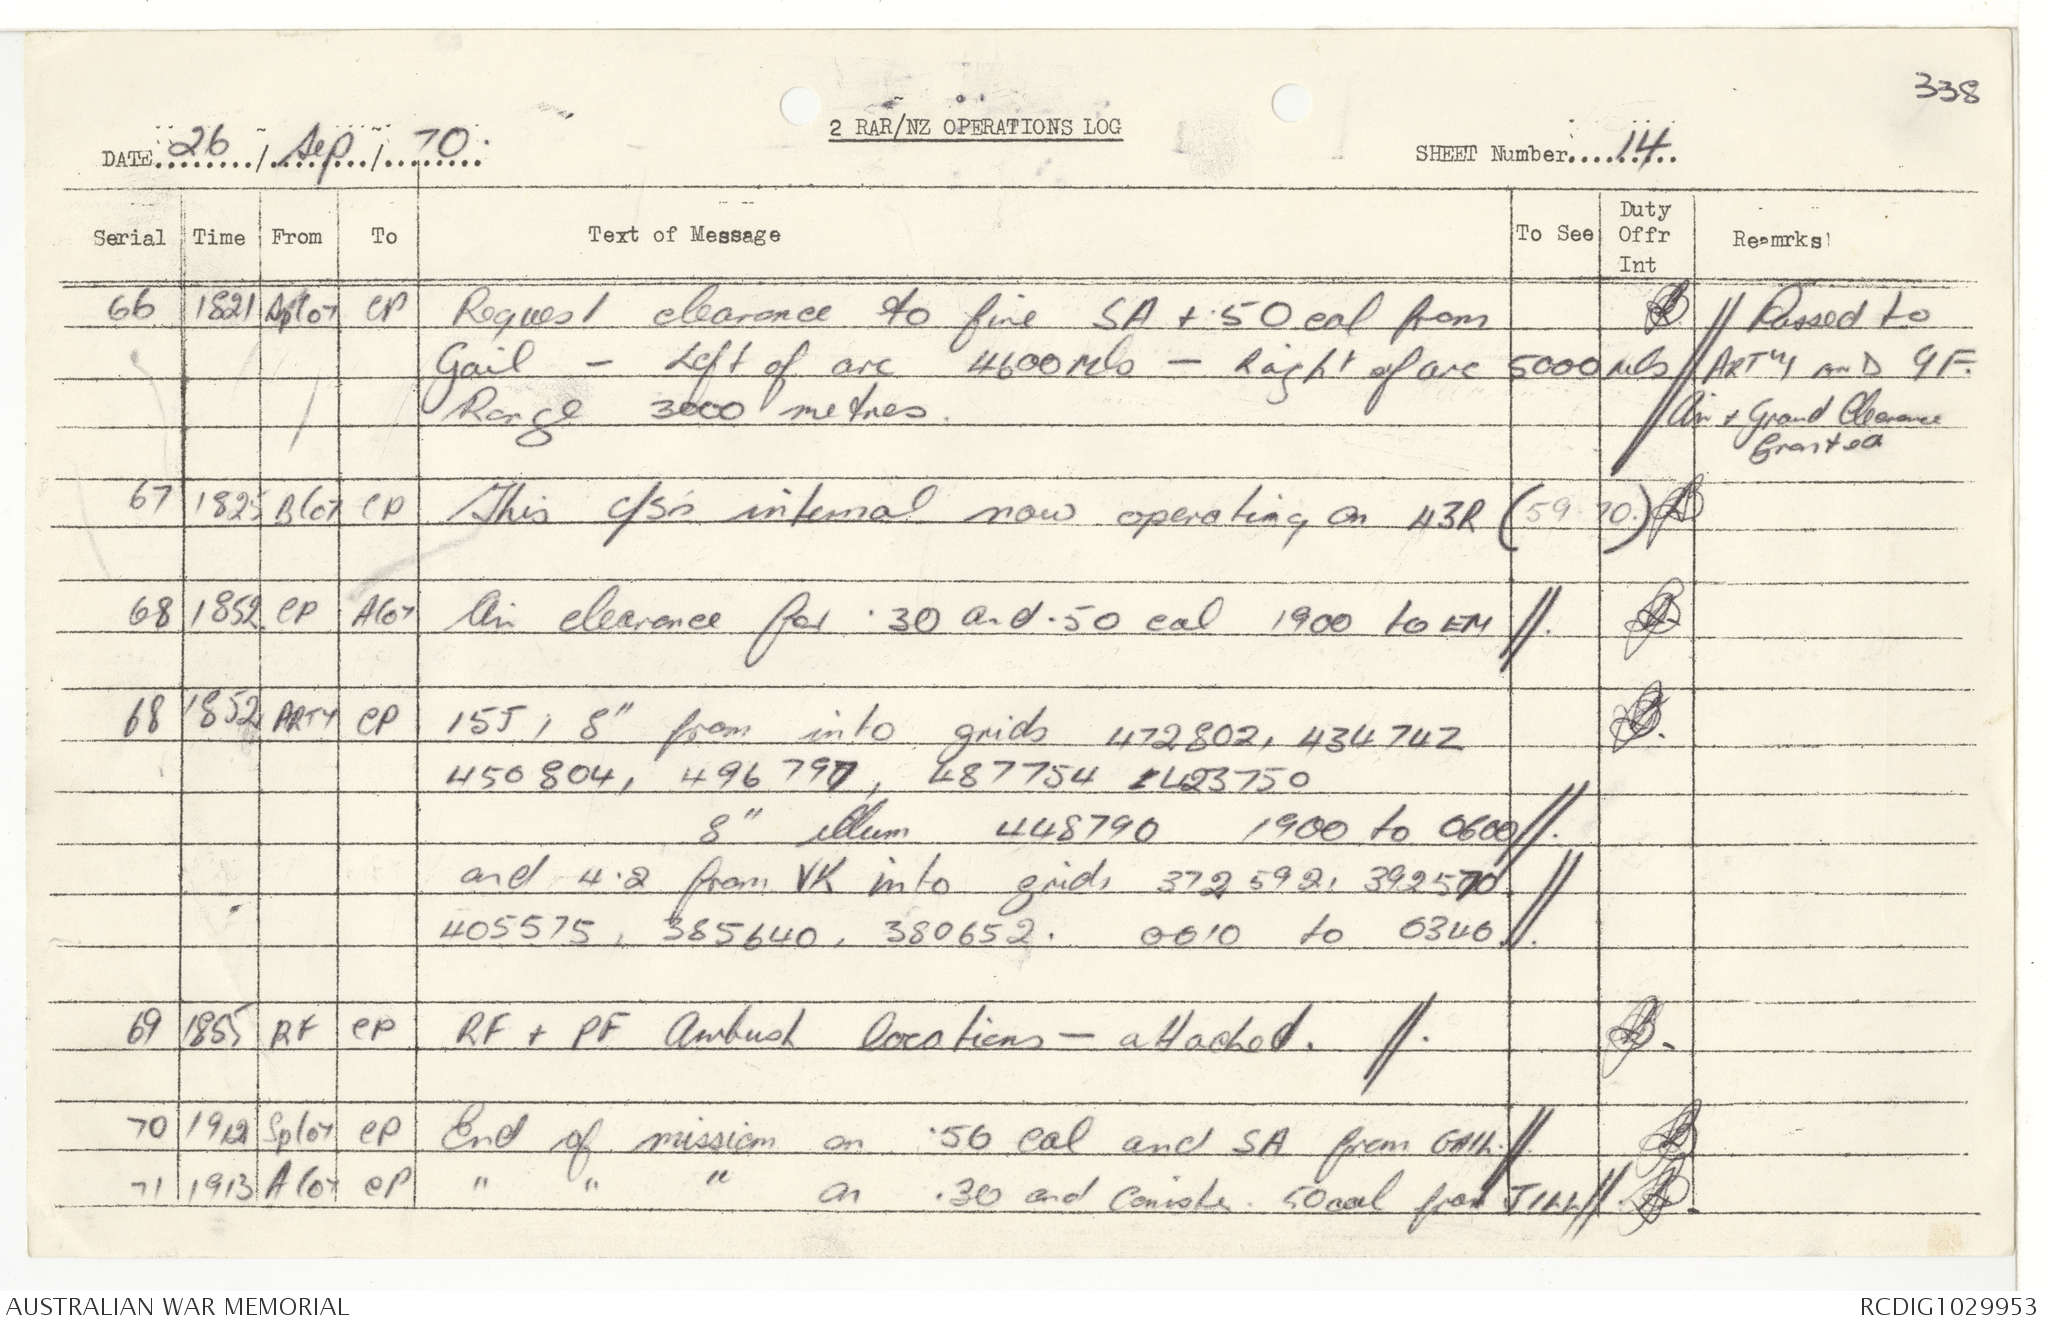 338
2 RAR/NZ OPERATIONS LOG
DATE 26 / Sep / 70.
SHEET Number 14
Serial Time From To Text of Message To See Duty Offr Int Reamrks
66 1821 CP Request clearance to fire SA + .50 cal from // Passed to
Gail - Left of arc 4600 Mls - Right of arc 5000 Mls ARTY AND 9F.
Range 3000 metres. Air + Ground Clearance
Granted
67 1825 CP This C/S's internal now operating on 43R (59.70.)
68 1852 CP Aloy Air clearance for .30 and .50 cal 1900 to EM //.
68 1852 ARTY CP 155, 8" from into grids 472802, 434742
450804, 496797, 487754 423750
8" illum 448790 1900 to 0600 //.
and 4.2 from VK into grids 372592, 392570
405575, 385640, 380652. 0010 to 0340 //.
69 1855 RF CP RF + PF Ambush locations - attached. //.
70 1912 CP End of mission on .50 cal and SA from GAIL. //.
71 1913 CP " " " on .30 and Canister .50 cal from JILL //.
AUSTRALIAN WAR MEMORIAL
RCDIG1029953